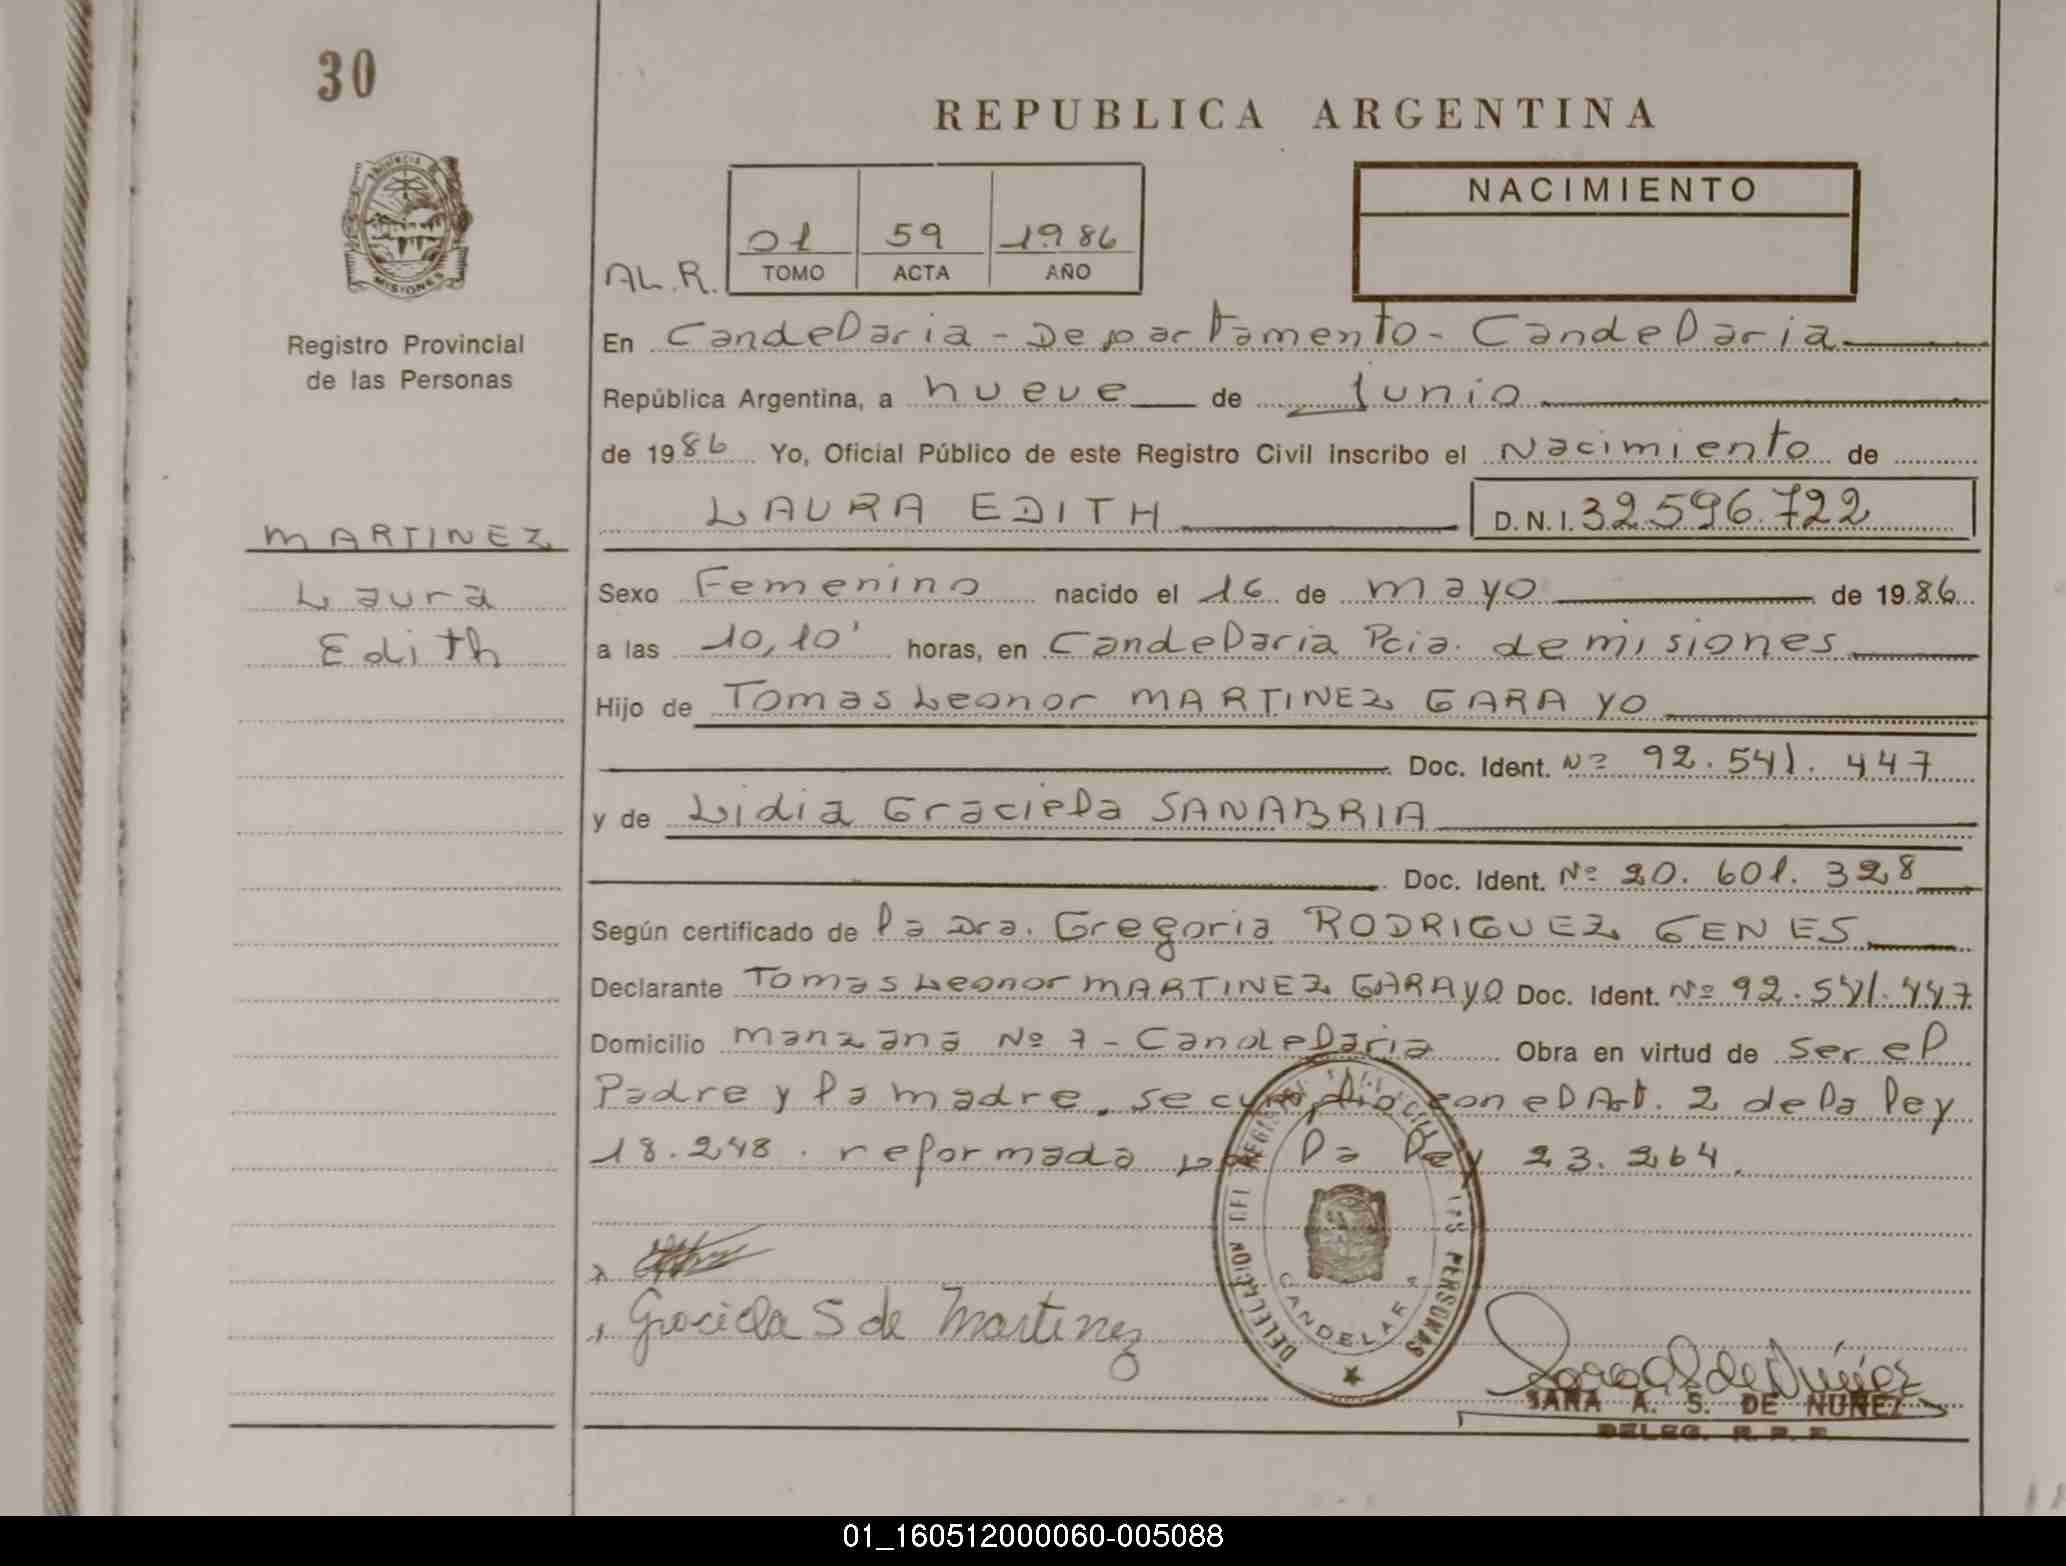 30
REPUBLICA ARGENTINA
MISIONES
Registro Provincial
de las Personas
AL.R.
01 59 1986
TOMO ACTA AÑO
NACIMIENTO
En Candelaria - Departamento - Candelaria
República Argentina, a nueve de Junio
de 1986 Yo, Oficial Público de este Registro Civil inscribo el Nacimiento de
LAURA EDITH D.N.I. 32.596.722
MARTINEZ
Laura
Edith
Sexo Femenino nacido el 16 de mayo de 1986
a las 10,10' horas, en Candelaria Pcia. de misiones
Hijo de Tomas Leonor MARTINEZ GARAYO
Doc. Ident. Nº 92.541.447
y de Lidia Graciela SANABRIA
Doc. Ident. Nº 20.601.328
Según certificado de la Dra. Gregoria RODRIGUEZ GENES
Declarante Tomas Leonor MARTINEZ GARAYO Doc. Ident. Nº 92.541.447
Domicilio Manzana Nº 7 - Candelaria Obra en virtud de ser el
Padre y la madre. se cumplio con el Art. 2 de la ley
18.248. reformada por la ley 23.264.
Graciela S de Martinez
DELEGACION DEL REGISTRO PERSONAS
SARA A. S. DE NUÑEZ
DELEG. R. P. P.
01_160512000060-005088